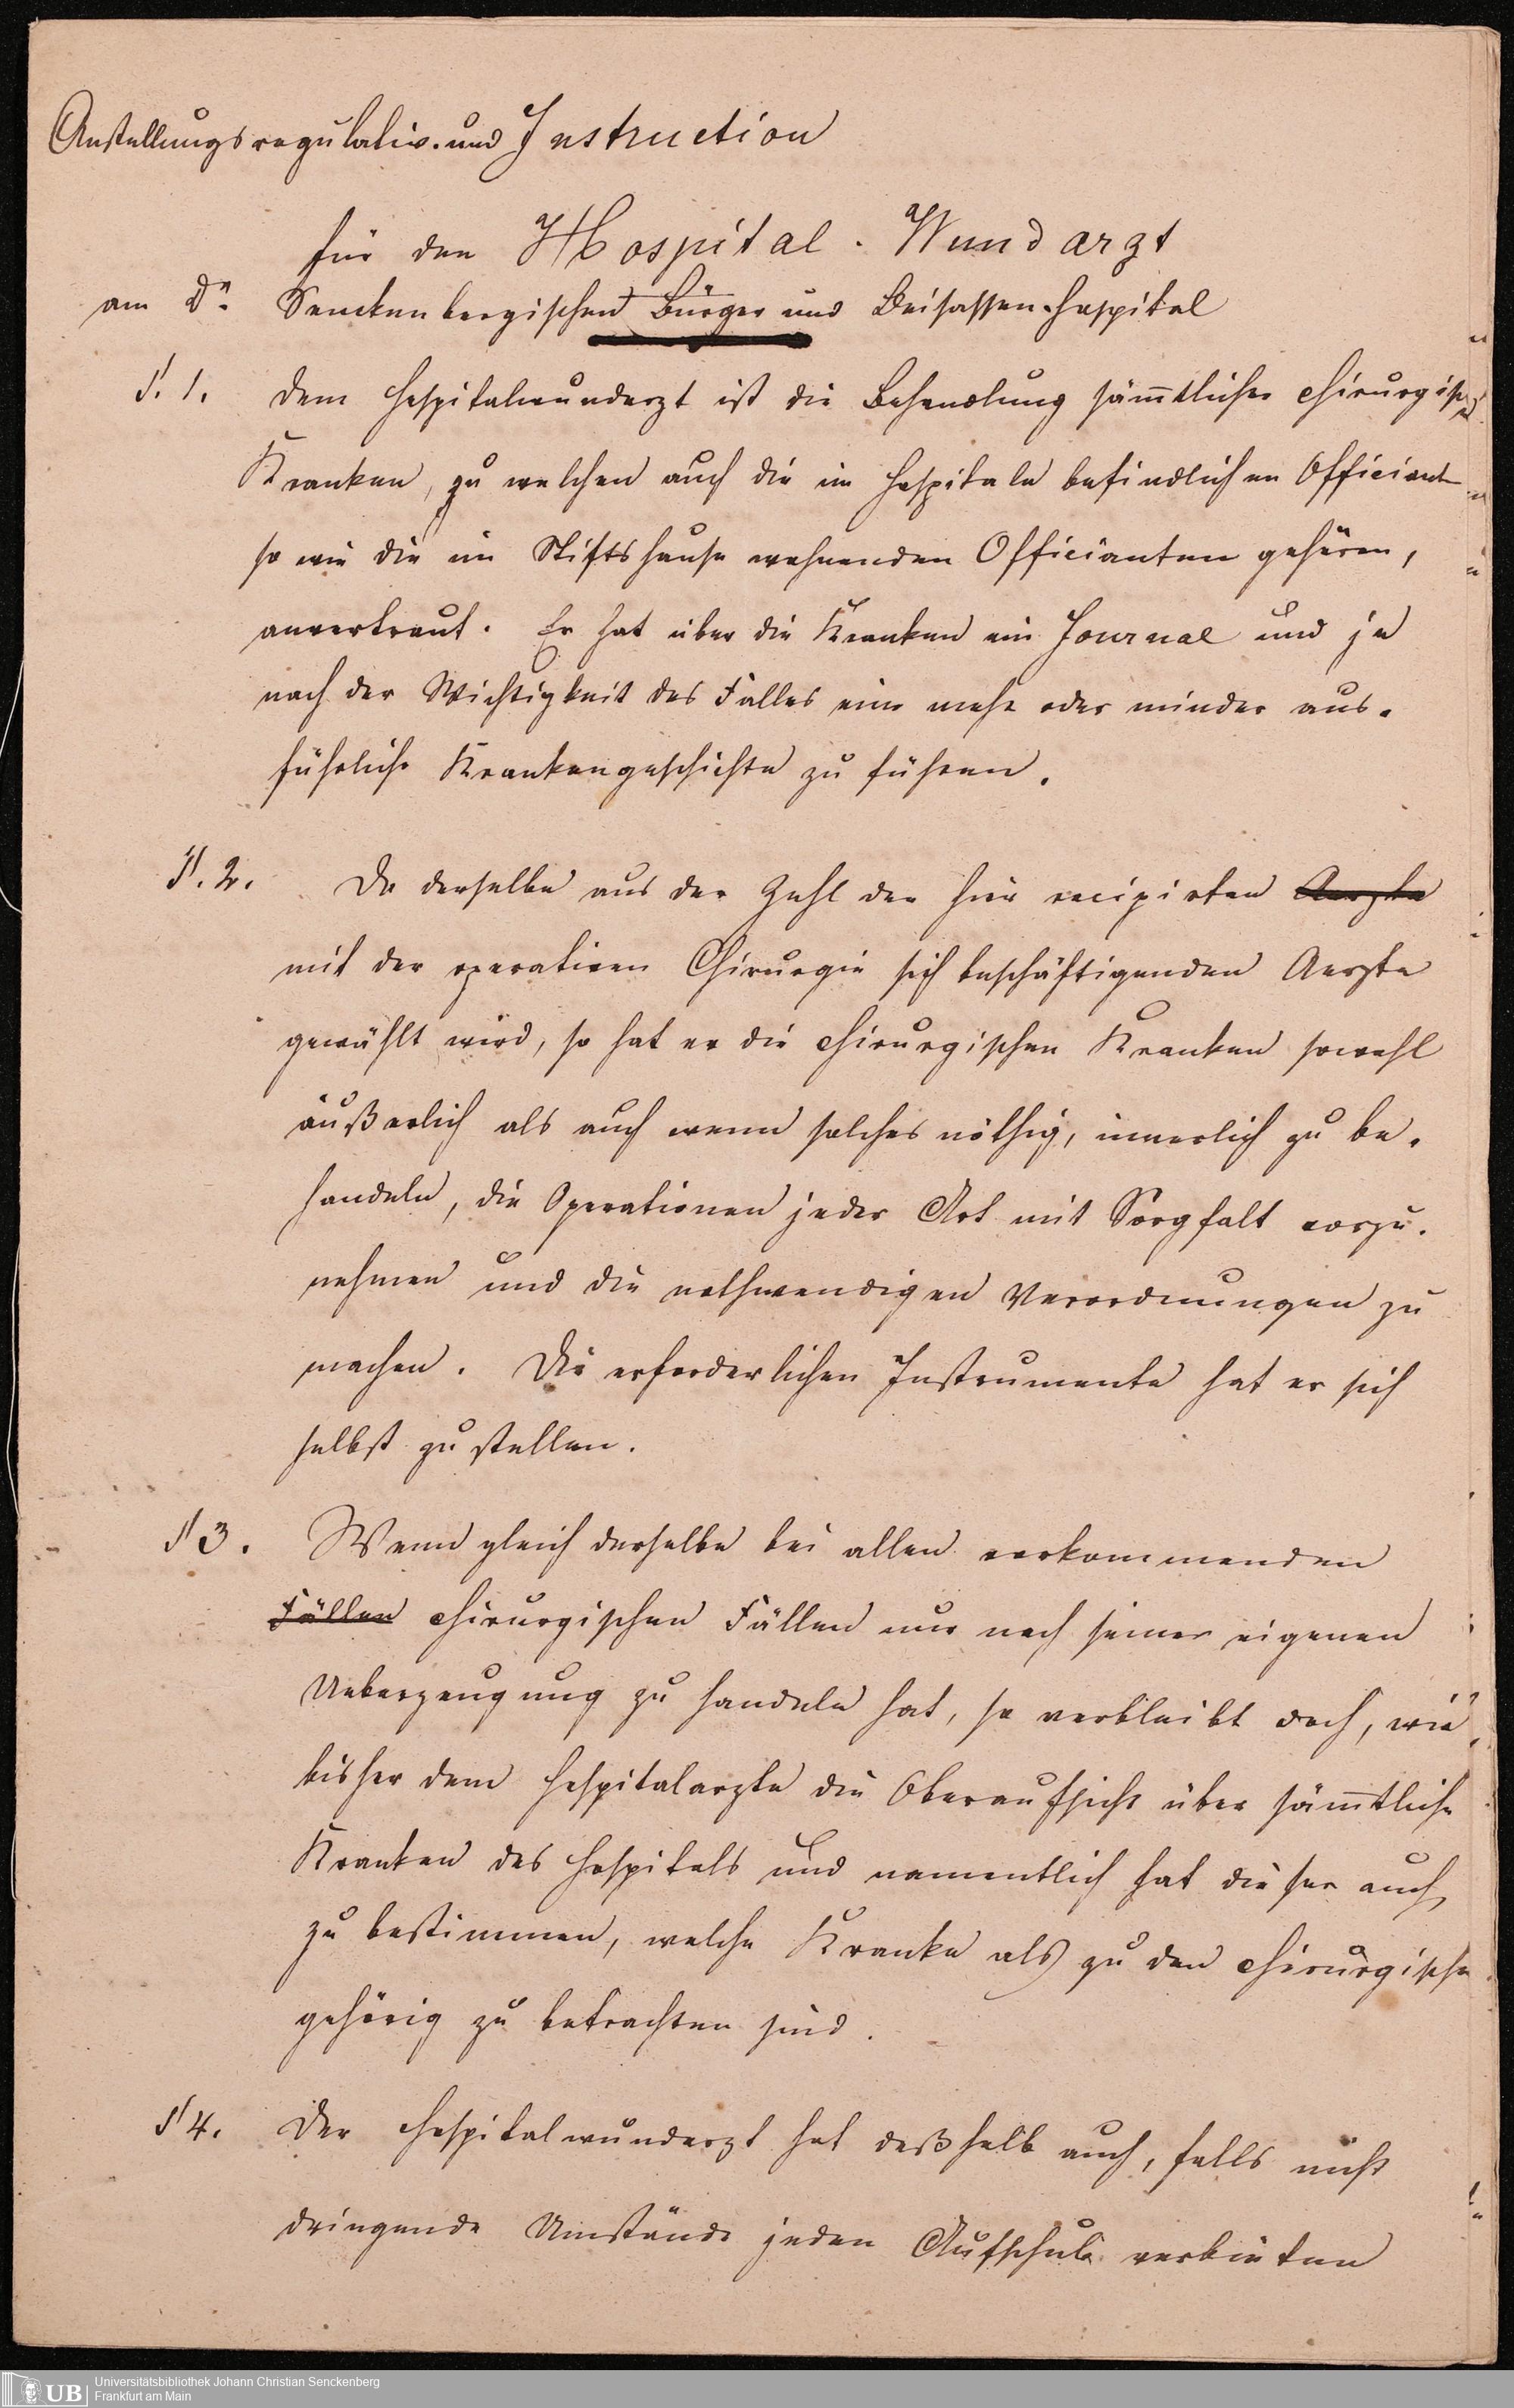 Anstellungsregulativ. und Instruction
für den Hospital-Wundarzt
am Dr. Senckenbergischen Bürger und Beisassen-Hospital
§. 1. Dem Hospitalwundarzt ist die Behandlung säm̄tlicher chirurgisch
Kranken, zu welchen auch die im Hospitale befindlichen Officiant
so wie die im Stiftshause wohnenden Officianten gehören,
anvertraut. Er hat über die Kranken ein Journal und je
nach der Wichtigkeit des Falles eine mehr oder minder aus-
führliche Krankengeschichte zu führen.
§. 2. Da derselbe aus der Zahl der hier recipirten Aerzte
mit der operativen Chirurgie sich beschäftigenden Aerzte
gewählt wird, so hat er die chirurgischen Kranken sowohl
äußerlich als auch wenn solches nöthig, innerlich zu be-
handeln, die Operationen jeder Art mit Sorgfalt vorzu-
nehmen und die nothwendigen Verordnungen zu
machen. Die erforderlichen Instrumente hat er sich
selbst zu stellen.
§ 3. Wenn gleich derselbe bei allen vorkommenden
Fällen chirurgischen Fällen nur nach seiner eigenen
Ueberzeugung zu handeln hat, so verbleibt doch, wie
bisher dem Hospitalarzte die Oberaufsicht über säm̄tliche
Kranken des Hospitals und namentlich hat dieser auch
zu bestimmen, welche Kranke als zu den chirurgische
gehörig zu betrachten sind.
§ 4. Der Hospitalwundarzt hat deßhalb auch, falls nicht
dringende Umstände jeden Aufschub verbieten
UB Universitätsbibliothek Johann Christian Senckenberg
Frankfurt am Main